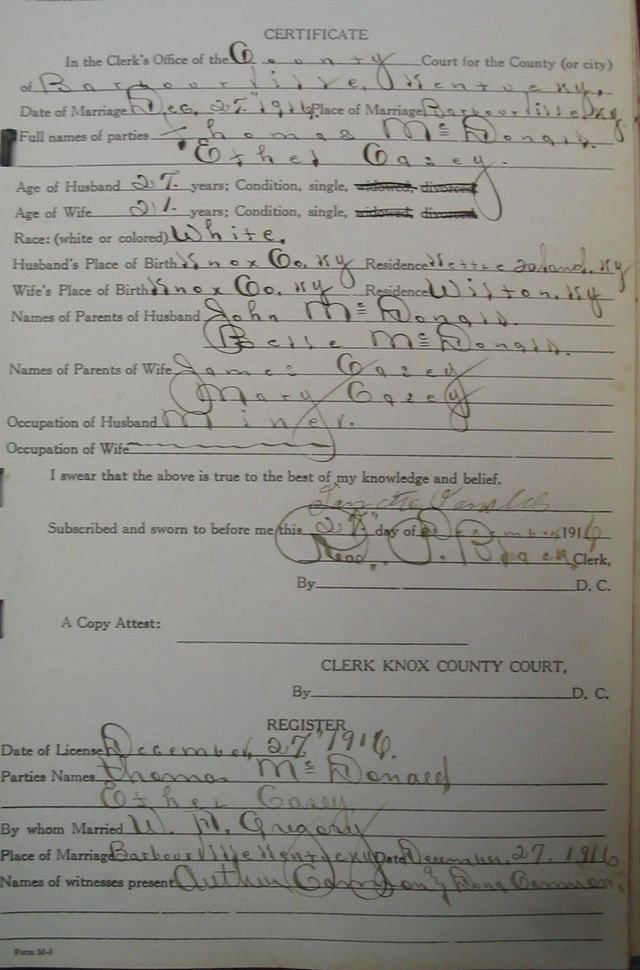 CERTIFICATE
In the Clerk's Office of the County Court for the County (or city)
of Barbourville, Kentucky,
Date of Marriage Dec, 27" 1916 Place of Marriage Barbourville, Ky
Full names of parties Thomas McDonald.
Ethel Casey.
Age of Husband 27. years; Condition, single, widowed, divorced
Age of Wife 21. years; Condition, single, widowed, divorced
Race: (white or colored) White.
Husband's Place of Birth Knox Co. Ky Residence Island, Ky
Wife's Place of Birth Knox Co. Ky Residence Wilton, Ky
Names of Parents of Husband John McDonald.
Belle McDonald.
Names of Parents of Wife James Casey
Mary Casey
Occupation of Husband Miner.
Occupation of Wife
I swear that the above is true to the best of my knowledge and belief.
Subscribed and sworn to before me this 27" day of December 1916
Read P. Black Clerk,
By D. C.
A Copy Attest:
CLERK KNOX COUNTY COURT,
By D. C.
REGISTER
Date of License December, 27" 1916.
Parties Names Thomas McDonald
Ethel Casey
By whom Married W. H. Gregory
Place of Marriage Barbourville Kentucky Date December, 27, 1916
Names of witnesses present &
Form M-3